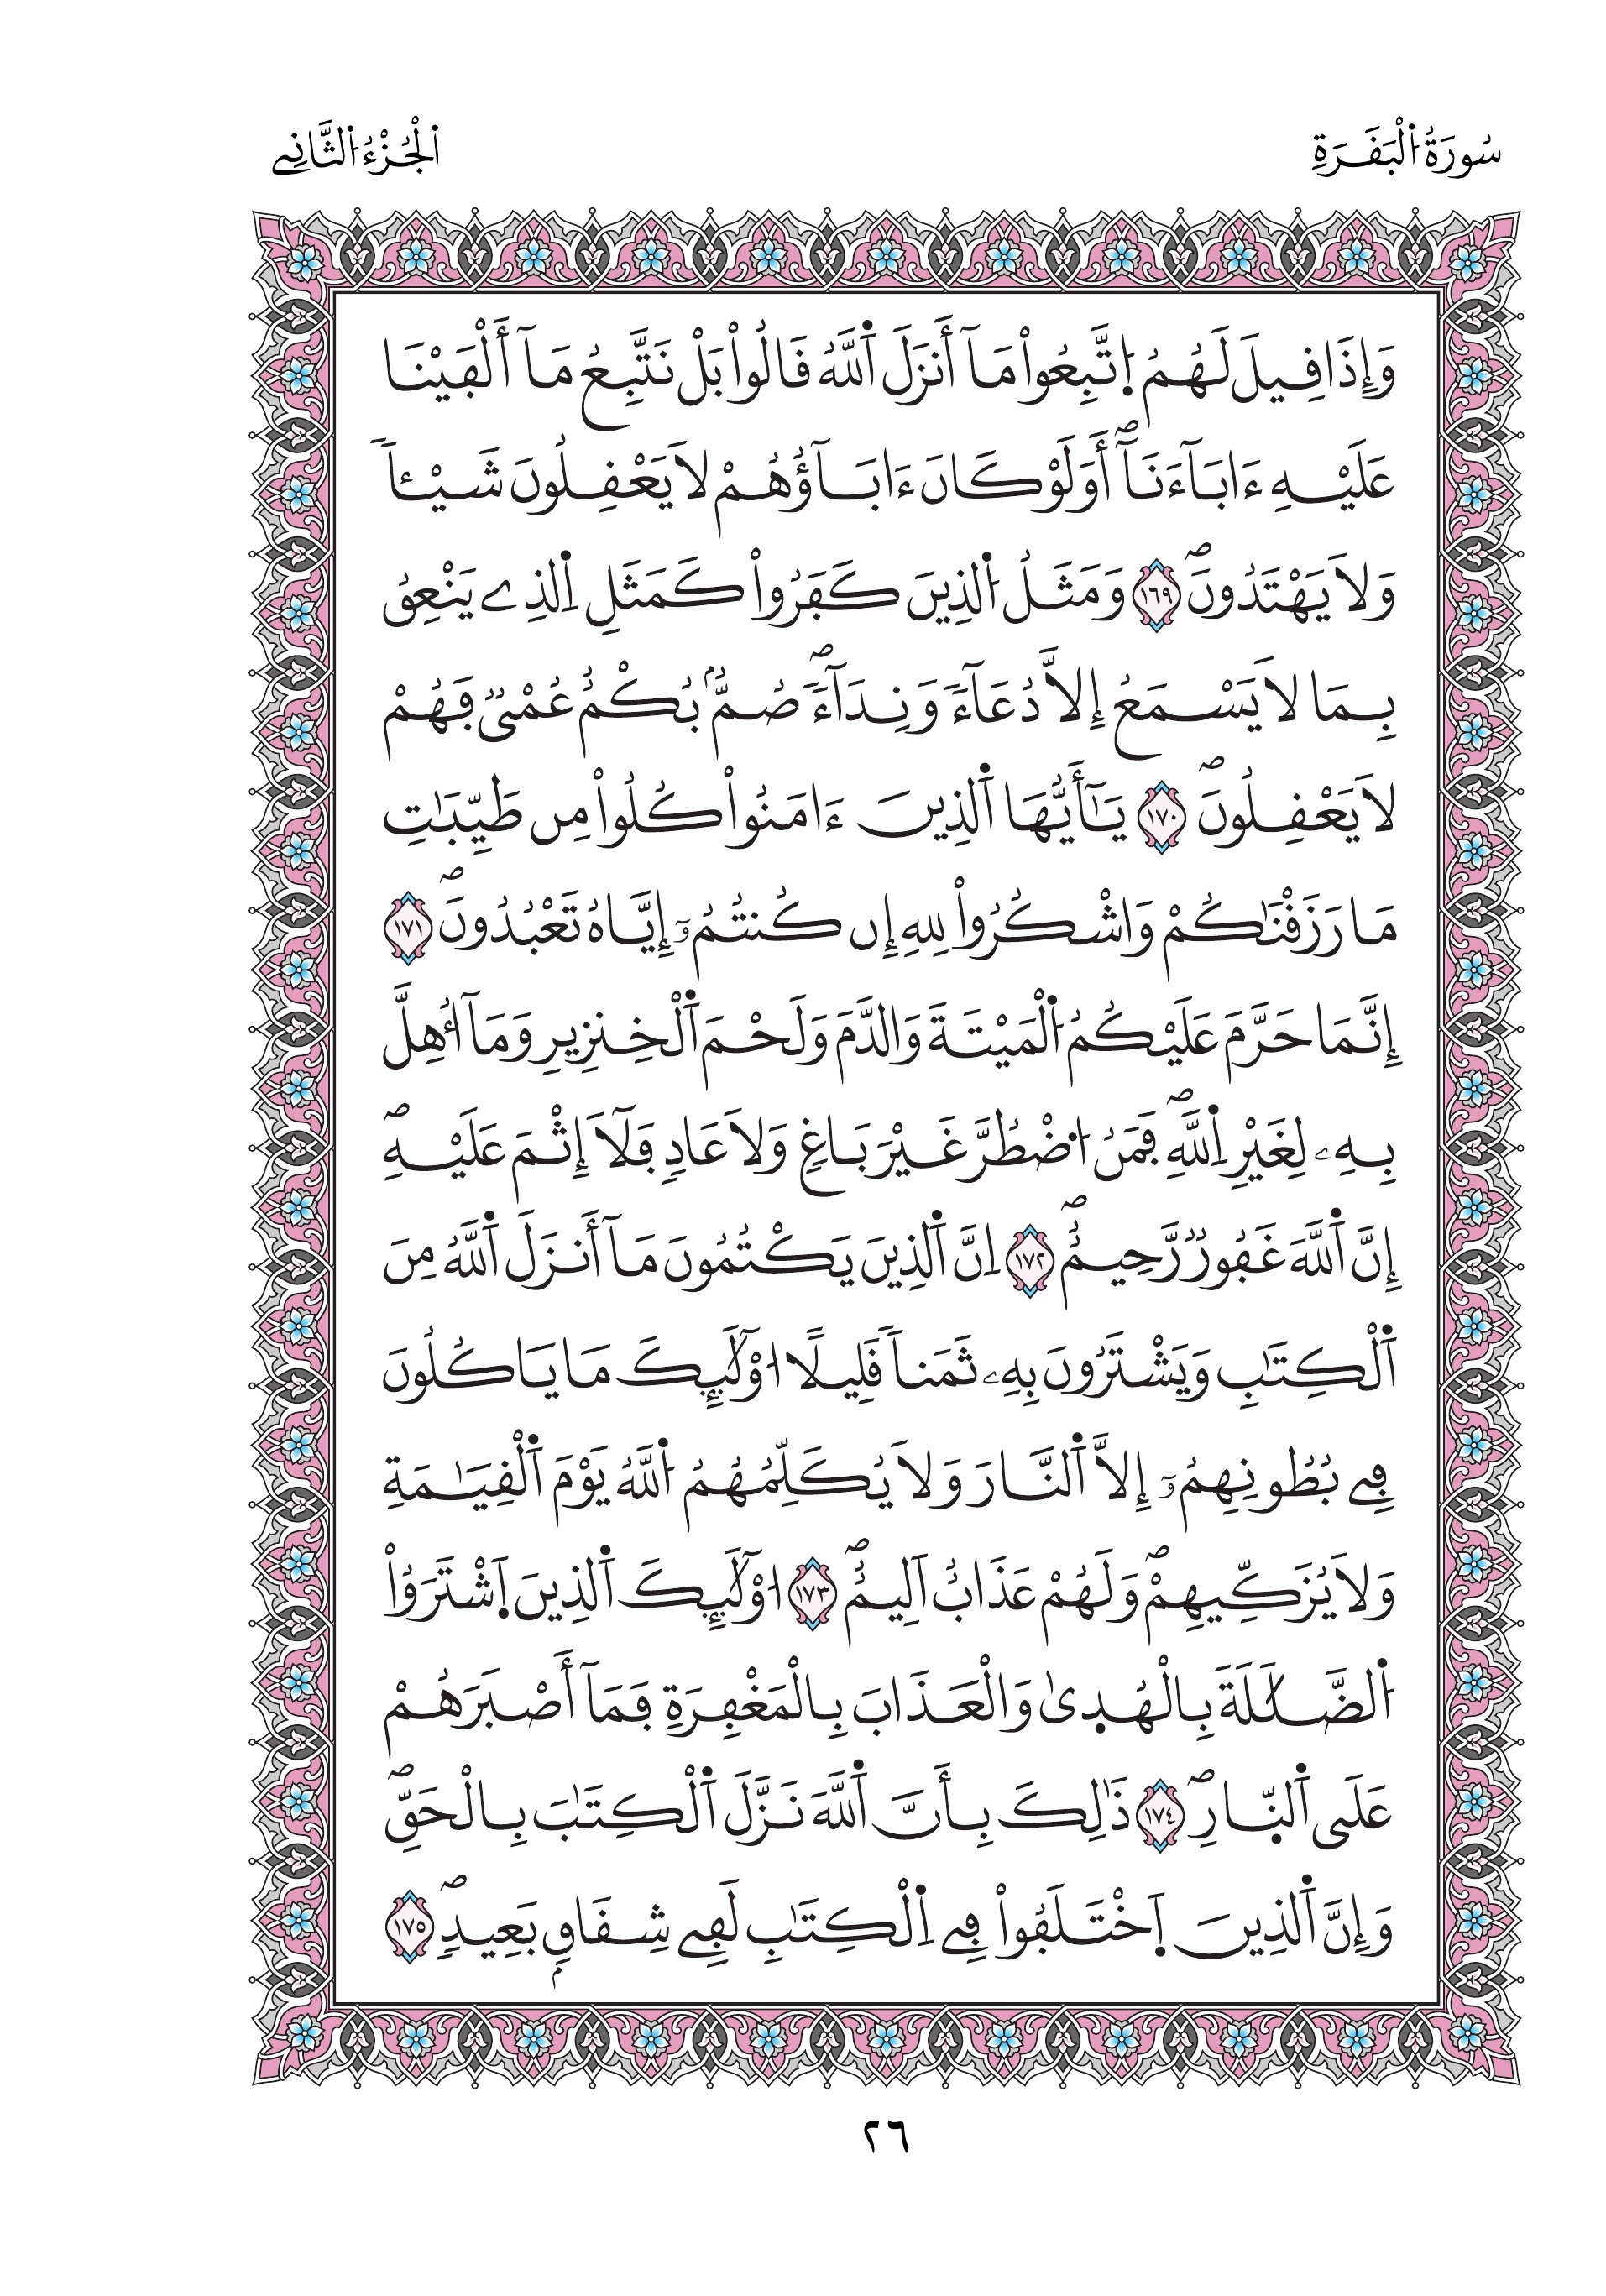 سُورَةُ اُ۬لْبَقَرَةِ
اَ۬لْجُزْءُ اُ۬لثَّانِے
وَإِذَا قِيلَ لَهُمُ اُ۪تَّبِعُواْ مَآ أَنزَلَ اَ۬للَّهُ قَالُواْ بَلْ نَتَّبِعُ مَآ أَلْفَيْنَا
عَلَيْهِ ءَابَآءَنَآۖ أَوَلَوْ كَانَ ءَابَآؤُهُمْ لَا يَعْقِلُونَ شَيْـٔاٗ
وَلَا يَهْتَدُونَۖ ١٦٩ وَمَثَلُ اُ۬لذِينَ كَفَرُواْ كَمَثَلِ اِ۬لذِے يَنْعِقُ
بِمَا لَا يَسْمَعُ إِلَّا دُعَآءٗ وَنِدَآءٗۖ صُمُّۢ بُكْمٌ عُمْيٞ فَهُمْ
لَا يَعْقِلُونَۖ ١٧٠ يَٰٓأَيُّهَا اَ۬لذِينَ ءَامَنُواْ كُلُواْ مِن طَيِّبَٰتِ
مَا رَزَقْنَٰكُمْ وَاشْكُرُواْ لِلهِ إِن كُنتُمُۥٓ إِيَّاهُ تَعْبُدُونَۖ ١٧١
إِنَّمَا حَرَّمَ عَلَيْكُمُ اُ۬لْمَيْتَةَ وَالدَّمَ وَلَحْمَ اَ۬لْخِنزِيرِ وَمَآ أُهِلَّ
بِهِۦ لِغَيْرِ اِ۬للَّهِۖ فَمَنُ اُ۟ضْطُرَّ غَيْرَ بَاغٖ وَلَا عَادٖ فَلَآ إِثْمَ عَلَيْهِۖ
إِنَّ اَ۬للَّهَ غَفُورٞ رَّحِيمٌۖ ١٧٢ اِنَّ اَ۬لذِينَ يَكْتُمُونَ مَآ أَنزَلَ اَ۬للَّهُ مِنَ
اَ۬لْكِتَٰبِ وَيَشْتَرُونَ بِهِۦ ثَمَناٗ قَلِيلًا ا۟وْلَٰٓئِكَ مَا يَاكُلُونَ
فِے بُطُونِهِمُۥٓ إِلَّا اَ۬لنَّارَ وَلَا يُكَلِّمُهُمُ اُ۬للَّهُ يَوْمَ اَ۬لْقِيَٰمَةِ
وَلَا يُزَكِّيهِمْۖ وَلَهُمْ عَذَابٌ اَلِيمٌۖ ١٧٣ ا۟وْلَٰٓئِكَ اَ۬لذِينَ اَ۪شْتَرَوُاْ
اُ۬لضَّلَٰلَةَ بِالْهُد۪ىٰ وَالْعَذَابَ بِالْمَغْفِرَةِ فَمَآ أَصْبَرَهُمْ
عَلَى اَ۬لنّ۪ارِۖ ١٧٤ ذَٰلِكَ بِأَنَّ اَ۬للَّهَ نَزَّلَ اَ۬لْكِتَٰبَ بِالْحَقِّۖ
وَإِنَّ اَ۬لذِينَ اَ۪خْتَلَفُواْ فِے اِ۬لْكِتَٰبِ لَفِے شِقَاقِۢ بَعِيدٖۖ ١٧٥
٢٦